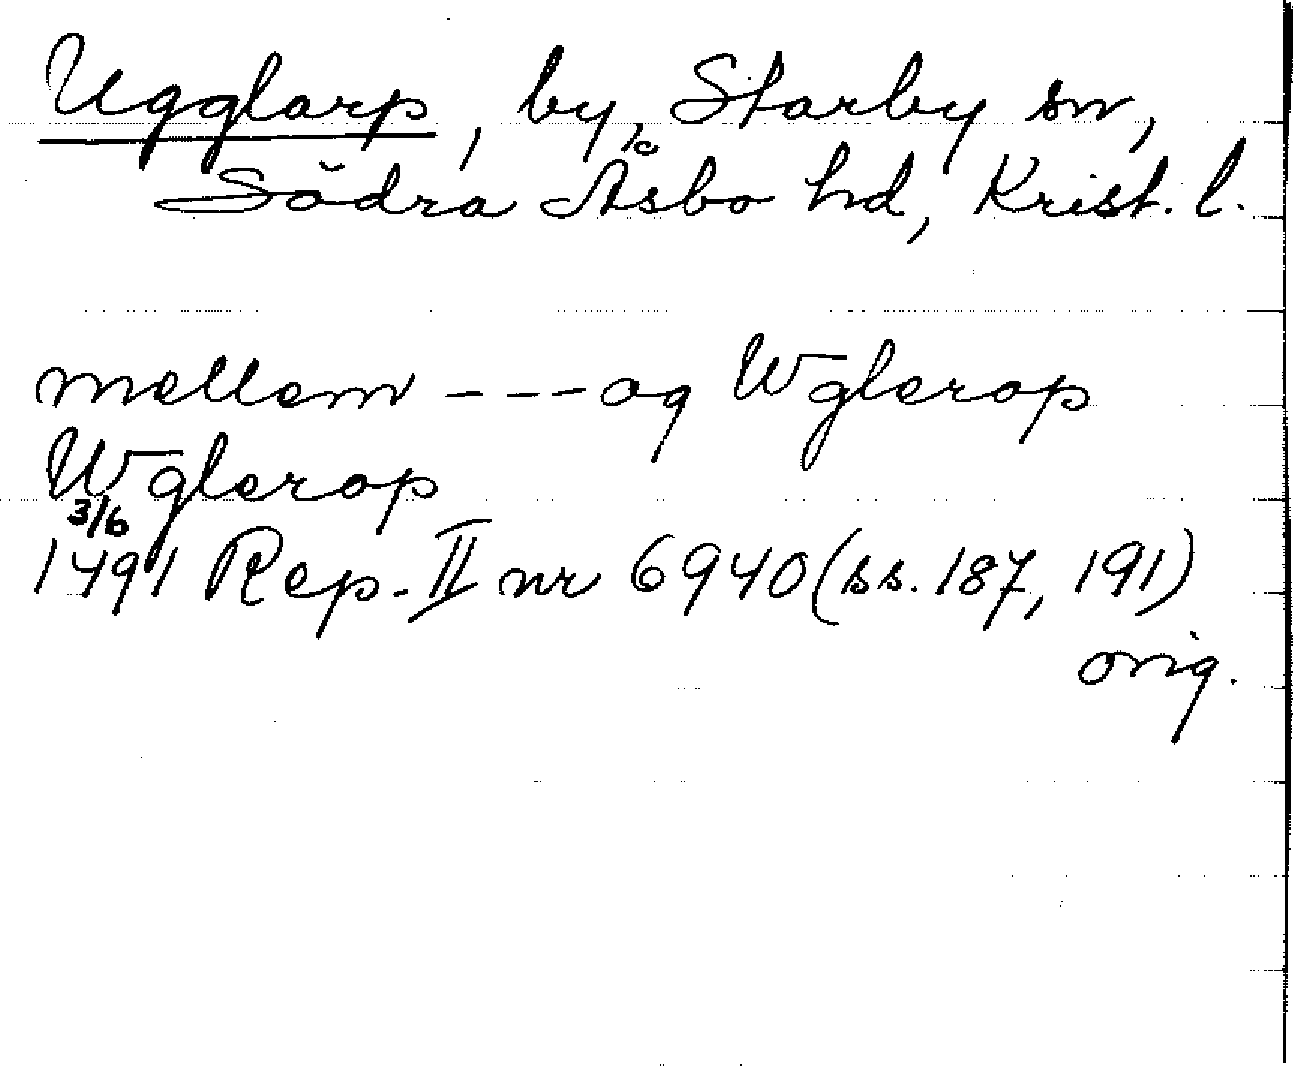 Ugglarp, by, Starby sn,
Södra Åsbo hd, Krist. l.
mellem --- og Wglerop
Wglerop
3/6
1491 Rep. II nr 6940 (ss. 187, 191)
orig.